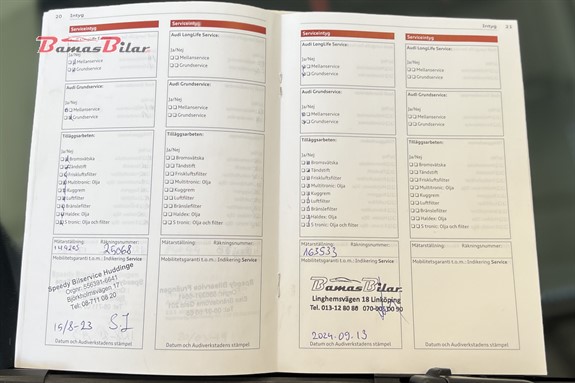 20 Intyg
Serviceintyg
Audi LongLife Service:
Ja/Nej
Mellanservice
Grundservice
Audi Grundservice:
Ja/Nej
Mellanservice
Grundservice
Tilläggsarbeten:
Ja/Nej
Bromsvätska
Tändstift
Friskluftsfilter
Multitronic: Olja
Kuggrem
Luftfilter
Bränslefilter
Haldex: Olja
S tronic: Olja och filter
Mätarställning: Räkningsnummer:
25068
Mobilitetsgaranti t.o.m.: Indikering Service
Speedy Bilservice Huddinge
Orgnr: 556391-6641
Björkholmsvägen 17
Tel: 08-711 08 20
15/8-23 SJ
Datum och Audiverkstadens stämpel
Serviceintyg
Audi LongLife Service:
Ja/Nej
Mellanservice
Grundservice
Audi Grundservice:
Ja/Nej
Mellanservice
Grundservice
Tilläggsarbeten:
Ja/Nej
Bromsvätska
Tändstift
Friskluftsfilter
Multitronic: Olja
Kuggrem
Luftfilter
Bränslefilter
Haldex: Olja
S tronic: Olja och filter
Mätarställning: Räkningsnummer:
Mobilitetsgaranti t.o.m.: Indikering Service
Datum och Audiverkstadens stämpel
BamasBilar
Intyg
Serviceintyg
Audi LongLife Service:
Ja/Nej
Mellanservice
Grundservice
Audi Grundservice:
Ja/Nej
Mellanservice
Grundservice
Tilläggsarbeten:
Ja/Nej
Bromsvätska
Tändstift
Friskluftsfilter
Multitronic: Olja
Kuggrem
Luftfilter
Bränslefilter
Haldex: Olja
S tronic: Olja och filter
Mätarställning: Räkningsnummer:
163533
Mobilitetsgaranti t.o.m.: Indikering Service
BamasBilar
Linghemsvägen 18 Linköping
Tel. 013-12 80 86
2024-09-13
Datum och Audiverkstadens stämpel
Serviceintyg
Audi LongLife Service:
Ja/Nej
Mellanservice
Grundservice
Audi Grundservice:
Ja/Nej
Mellanservice
Grundservice
Tilläggsarbeten:
Ja/Nej
Bromsvätska
Tändstift
Friskluftsfilter
Multitronic: Olja
Kuggrem
Luftfilter
Bränslefilter
Haldex: Olja
S tronic: Olja och filter
Mätarställning: Räkningsnummer:
Mobilitetsgaranti t.o.m.: Indikering Service
Datum och Audiverkstadens stämpel